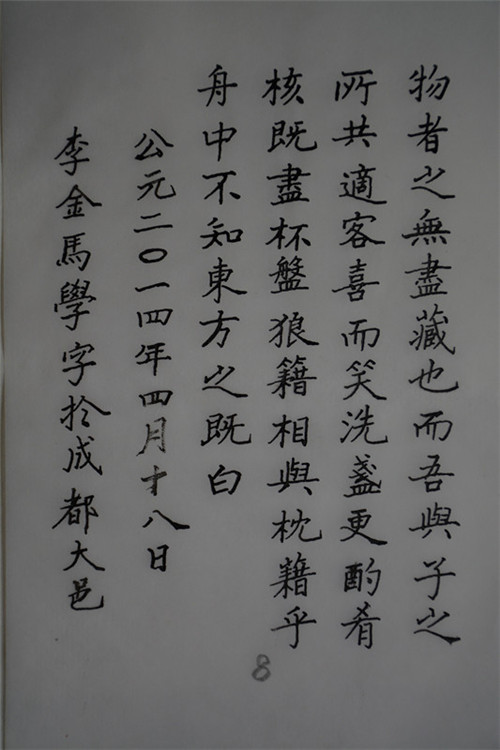 物者之無盡藏也而吾與子之
所共適客喜而笑洗盞更酌肴
核既盡杯盤狼籍相與枕藉乎
舟中不知東方之既白
公元二〇一四年四月十八日
李金馬學字於成都大邑
8